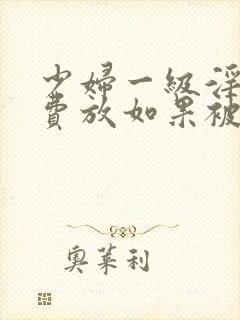 少婦一級淫
費放如果被
奧萊利